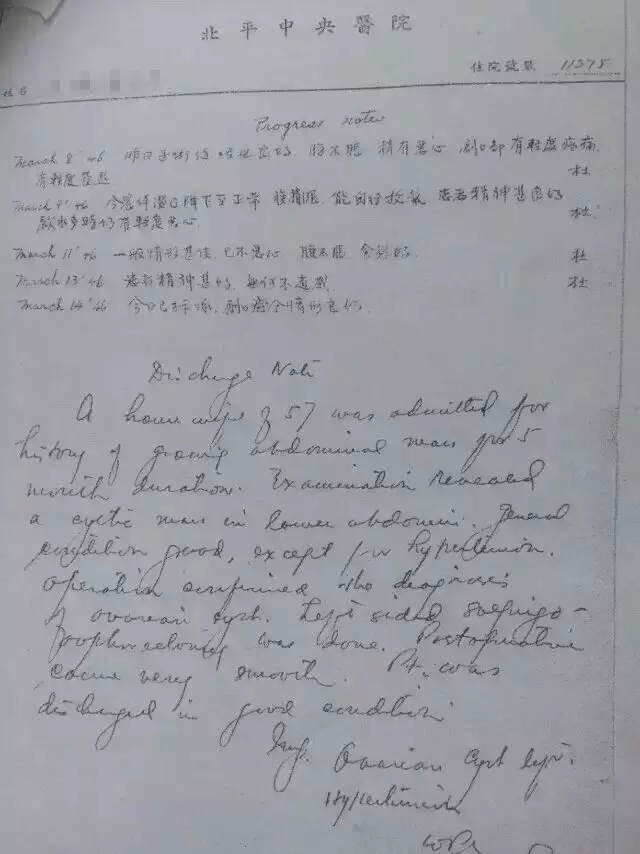 北平中央醫院
住院號數 11275
姓名
Progress notes
March 8' 46 昨日手術後 腹不脹 稍有惡心 創口部有輕度疼痛 杜
有輕度
March 9' 46 今晨体溫已降下至正常 腹稍脹 能自 患者精神甚良好
飲水多時仍有輕度惡心 杜
March 11' 46 一般情形甚佳 已不惡心 腹不脹 杜
March 13' 46 患者精神甚好 無何不適處 杜
March 14' 46 今日已拆線 創口癒合情形良好
Discharge Note
A house wife of 57 was admitted for
history of growing abdominal mass for 5
month duration. Examination revealed
a cystic mass in lower abdomen. General
condition good, except for hypertension.
operation confirmed the diagnosis
of ovarian cyst. Left sided salpingo-
oophorectomy was done. Postoperative
course very smooth. Pt. was
discharged in good condition.
Imp. Ovarian Cyst left.
Hypertension